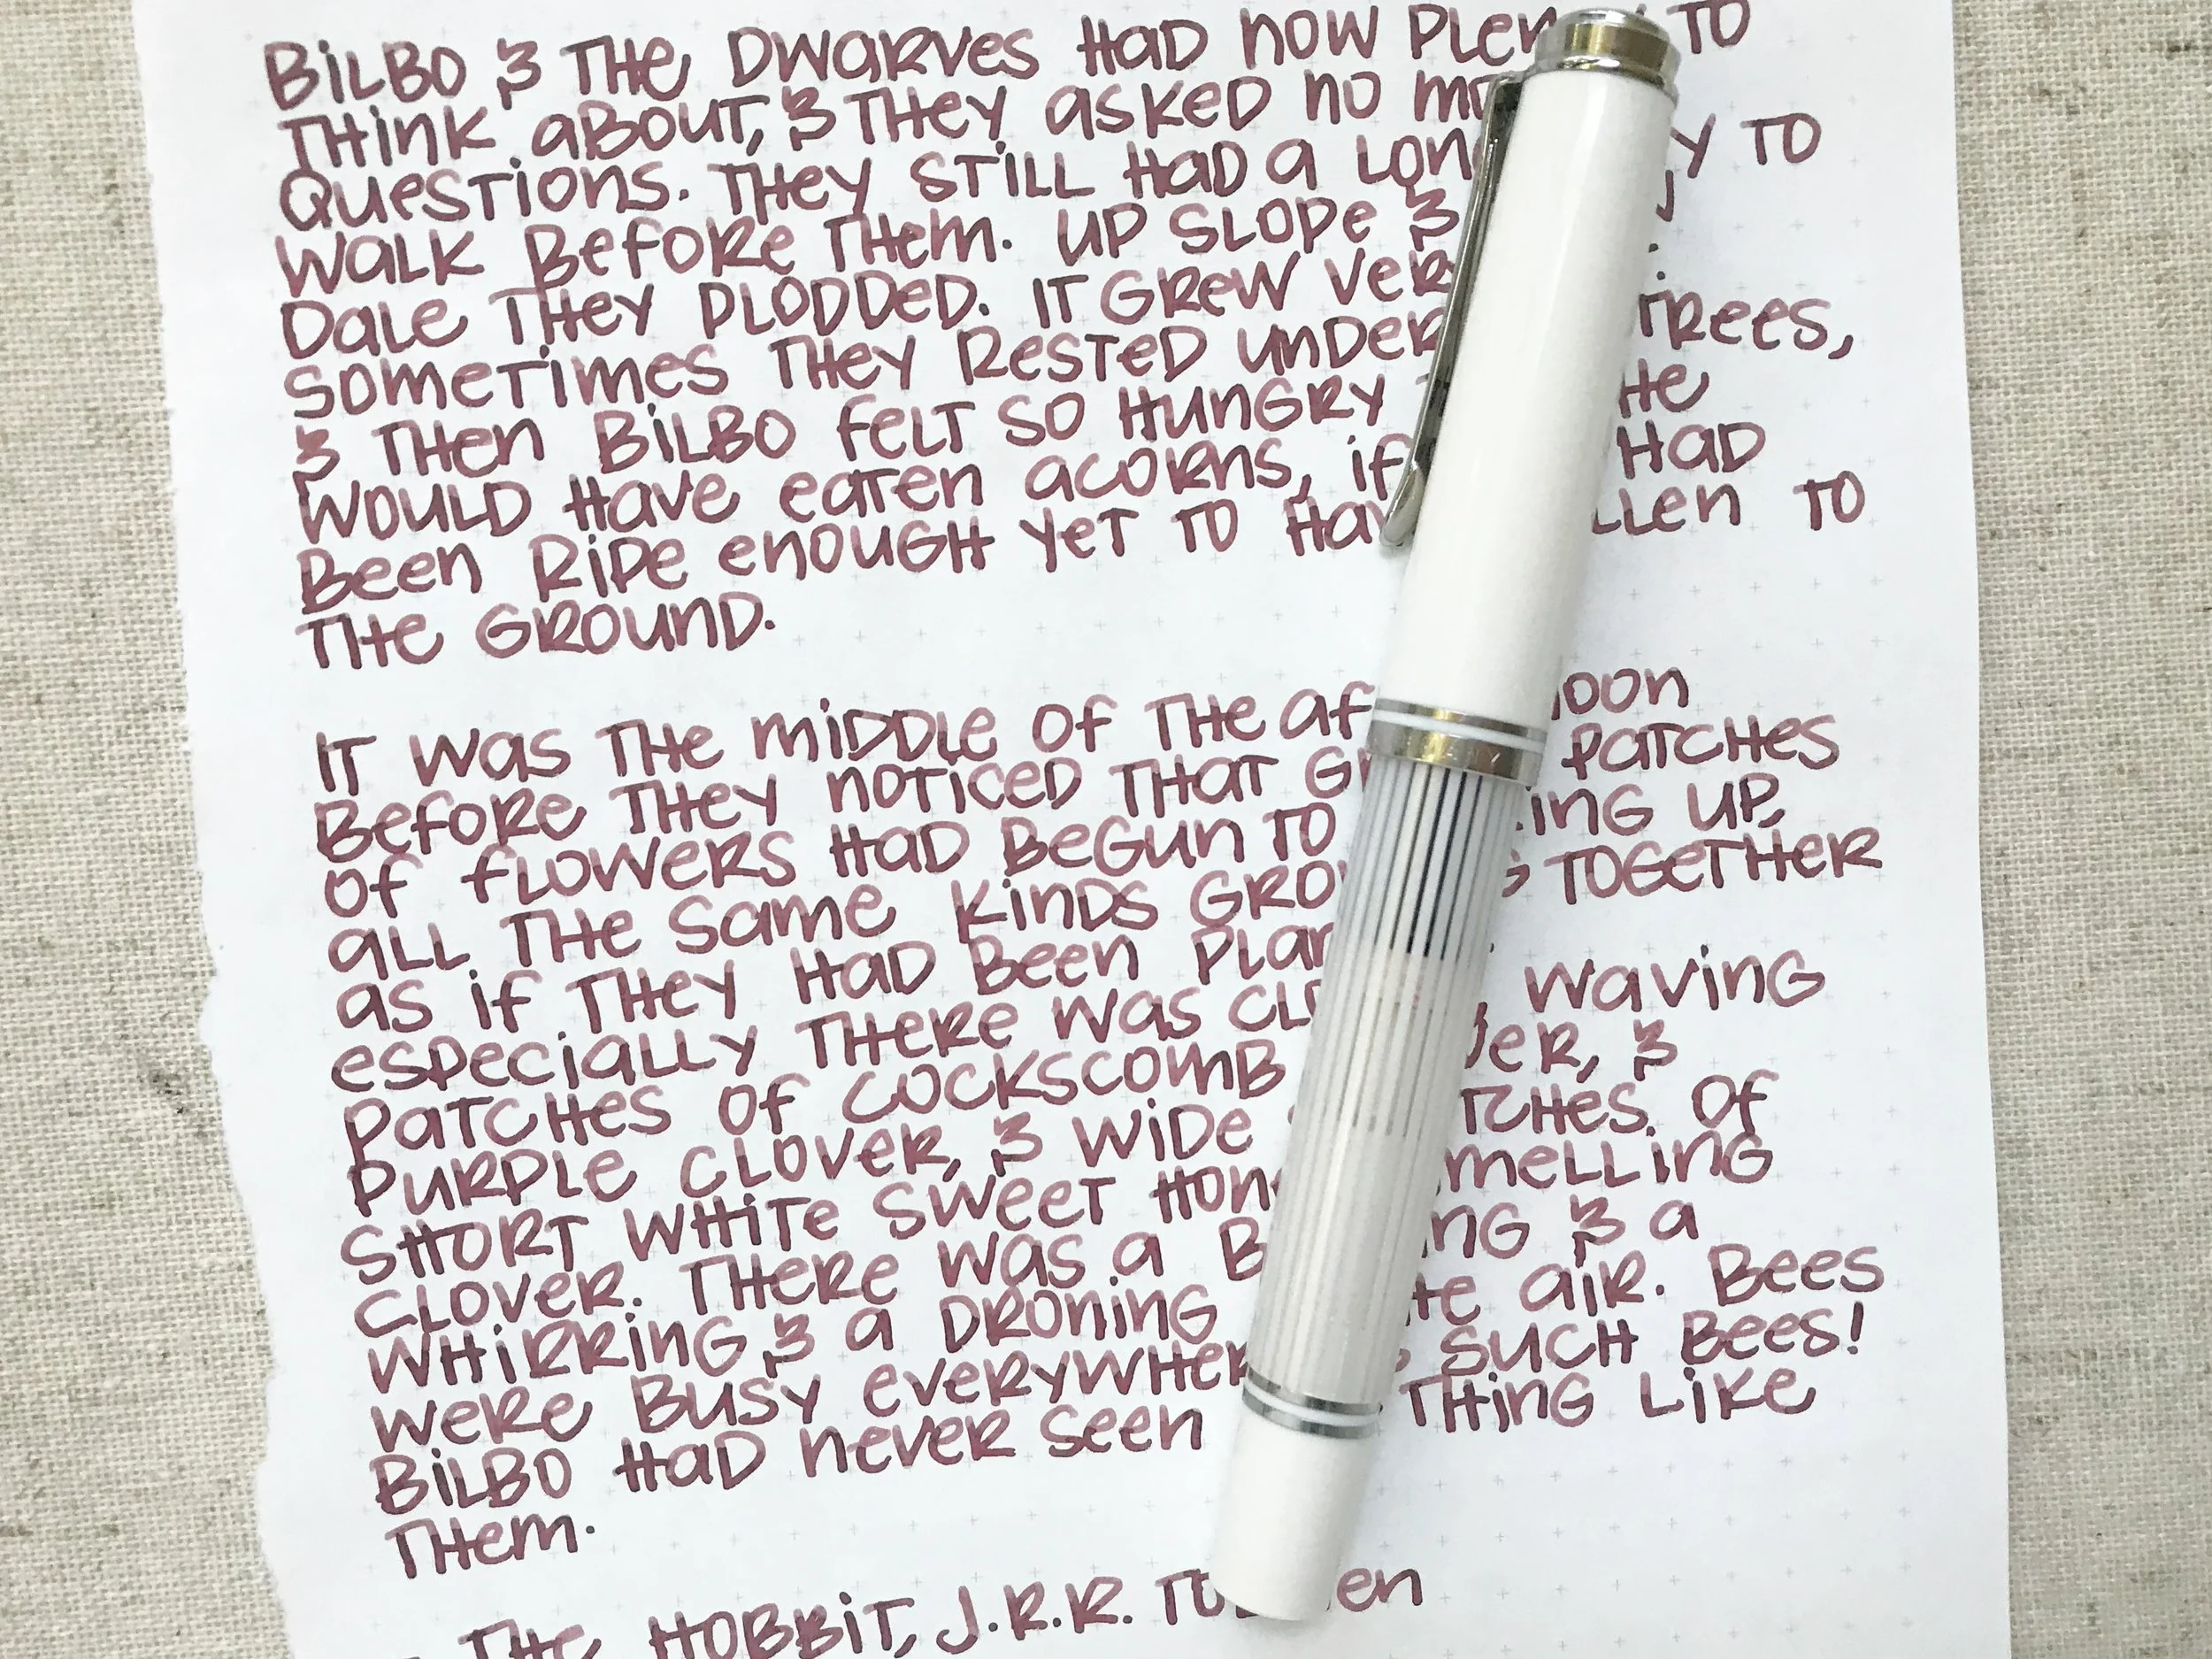 BILBO & THE DWARVES HAD NOW PLENTY TO
THINK ABOUT, & THEY ASKED NO
QUESTIONS. THEY STILL HAD A LONG TO
WALK BEFORE THEM. UP SLOPE &
DALE THEY PLODDED. IT GREW VERY
SOMETIMES THEY RESTED UNDER TREES,
& THEN BILBO FELT SO HUNGRY HE
WOULD HAVE EATEN ACORNS, IF HAD
BEEN RIPE ENOUGH YET TO HAVE FALLEN TO
THE GROUND.
IT WAS THE MIDDLE OF THE AFTERNOON
BEFORE THEY NOTICED THAT PATCHES
OF FLOWERS HAD BEGUN TO UP,
ALL THE SAME KINDS GROWING TOGETHER
AS IF THEY HAD BEEN PLANTED.
ESPECIALLY THERE WAS CLOVER, WAVING
PATCHES OF COCKSCOMB CLOVER, &
PURPLE CLOVER, & WIDE STRETCHES OF
SHORT WHITE SWEET HONEY-SMELLING
CLOVER. THERE WAS A BUZZING & A
WHIRRING & A DRONING THE AIR. BEES
WERE BUSY EVERYWHERE. & SUCH BEES!
BILBO HAD NEVER SEEN ANYTHING LIKE
THEM.
THE HOBBIT, J.R.R. TOLKIEN